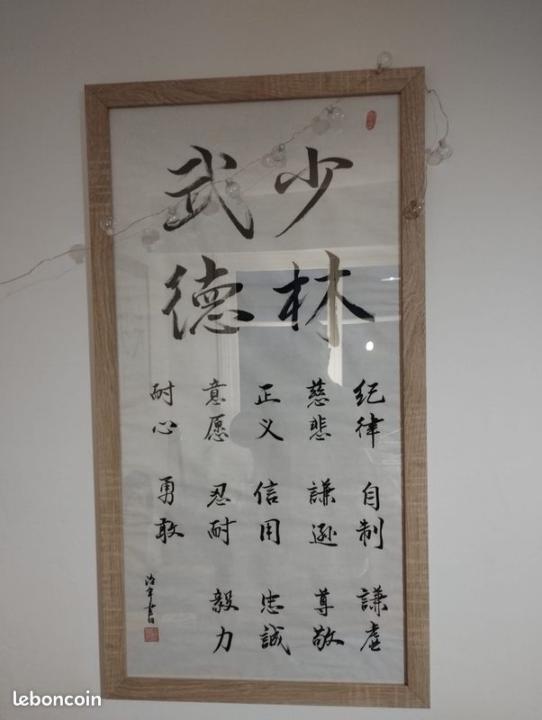 少林
武德
纪律 自制 謙虚
慈悲 謙逊 尊敬
正义 信用 忠誠
意愿 忍耐 毅力
耐心 勇敢
leboncoin